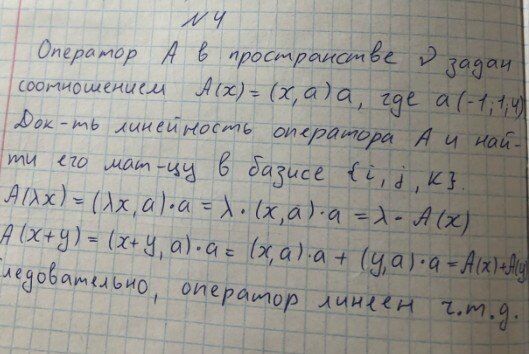 №4
Оператор A в пространстве V задан
соотношением A(x) = (x, a) a, где a(-1; 1; 4)
Док-ть линейность оператора A и най-
ти его мат-цу в базисе {i, j, k}.
A(λx) = (λx, a)·a = λ·(x, a)·a = λ·A(x)
A(x+y) = (x+y, a)·a = (x, a)·a + (y, a)·a = A(x)+A(y
ледовательно, оператор линеен ч.т.д.